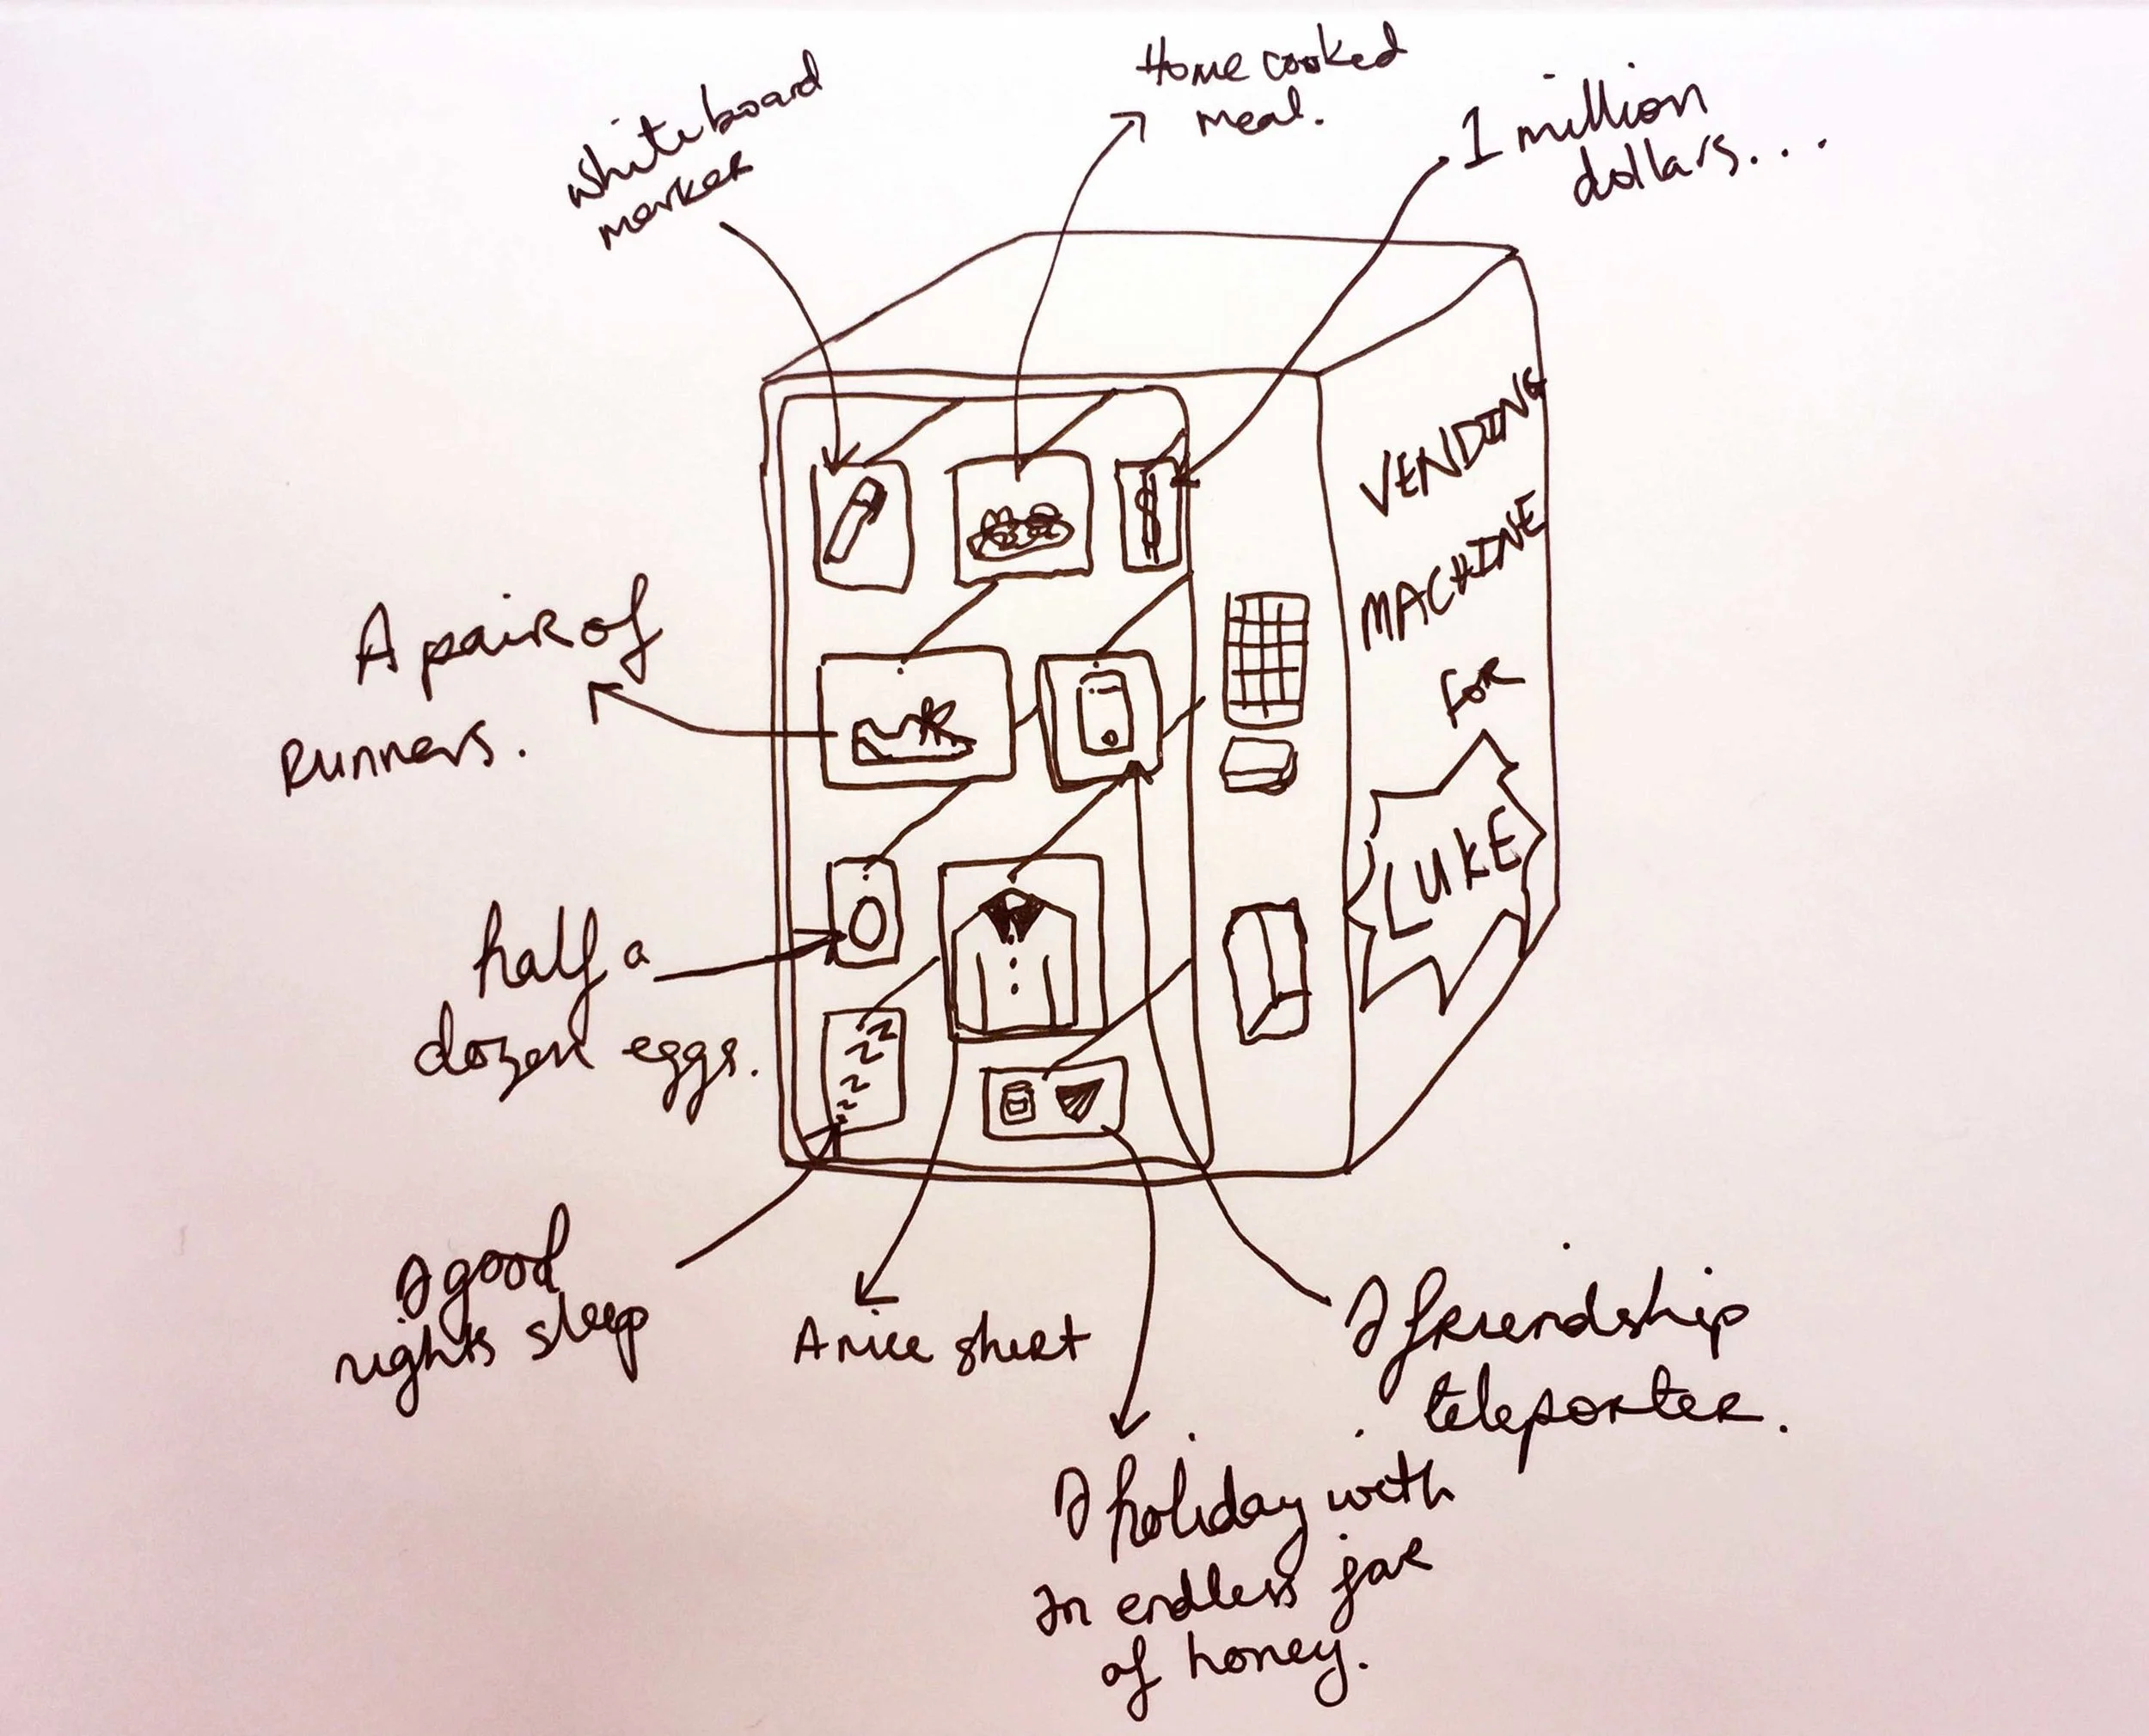 whiteboard
marker
Home cooked
meal.
1 million
dollars....
VENDING
MACHINE
FOR
LUKE
A pair of
Runners.
half a
dozen eggs.
zzzz
A good
nights sleep
A nice shirt
A friendship
teleporter.
A holiday with
an endless jar
of honey.
$